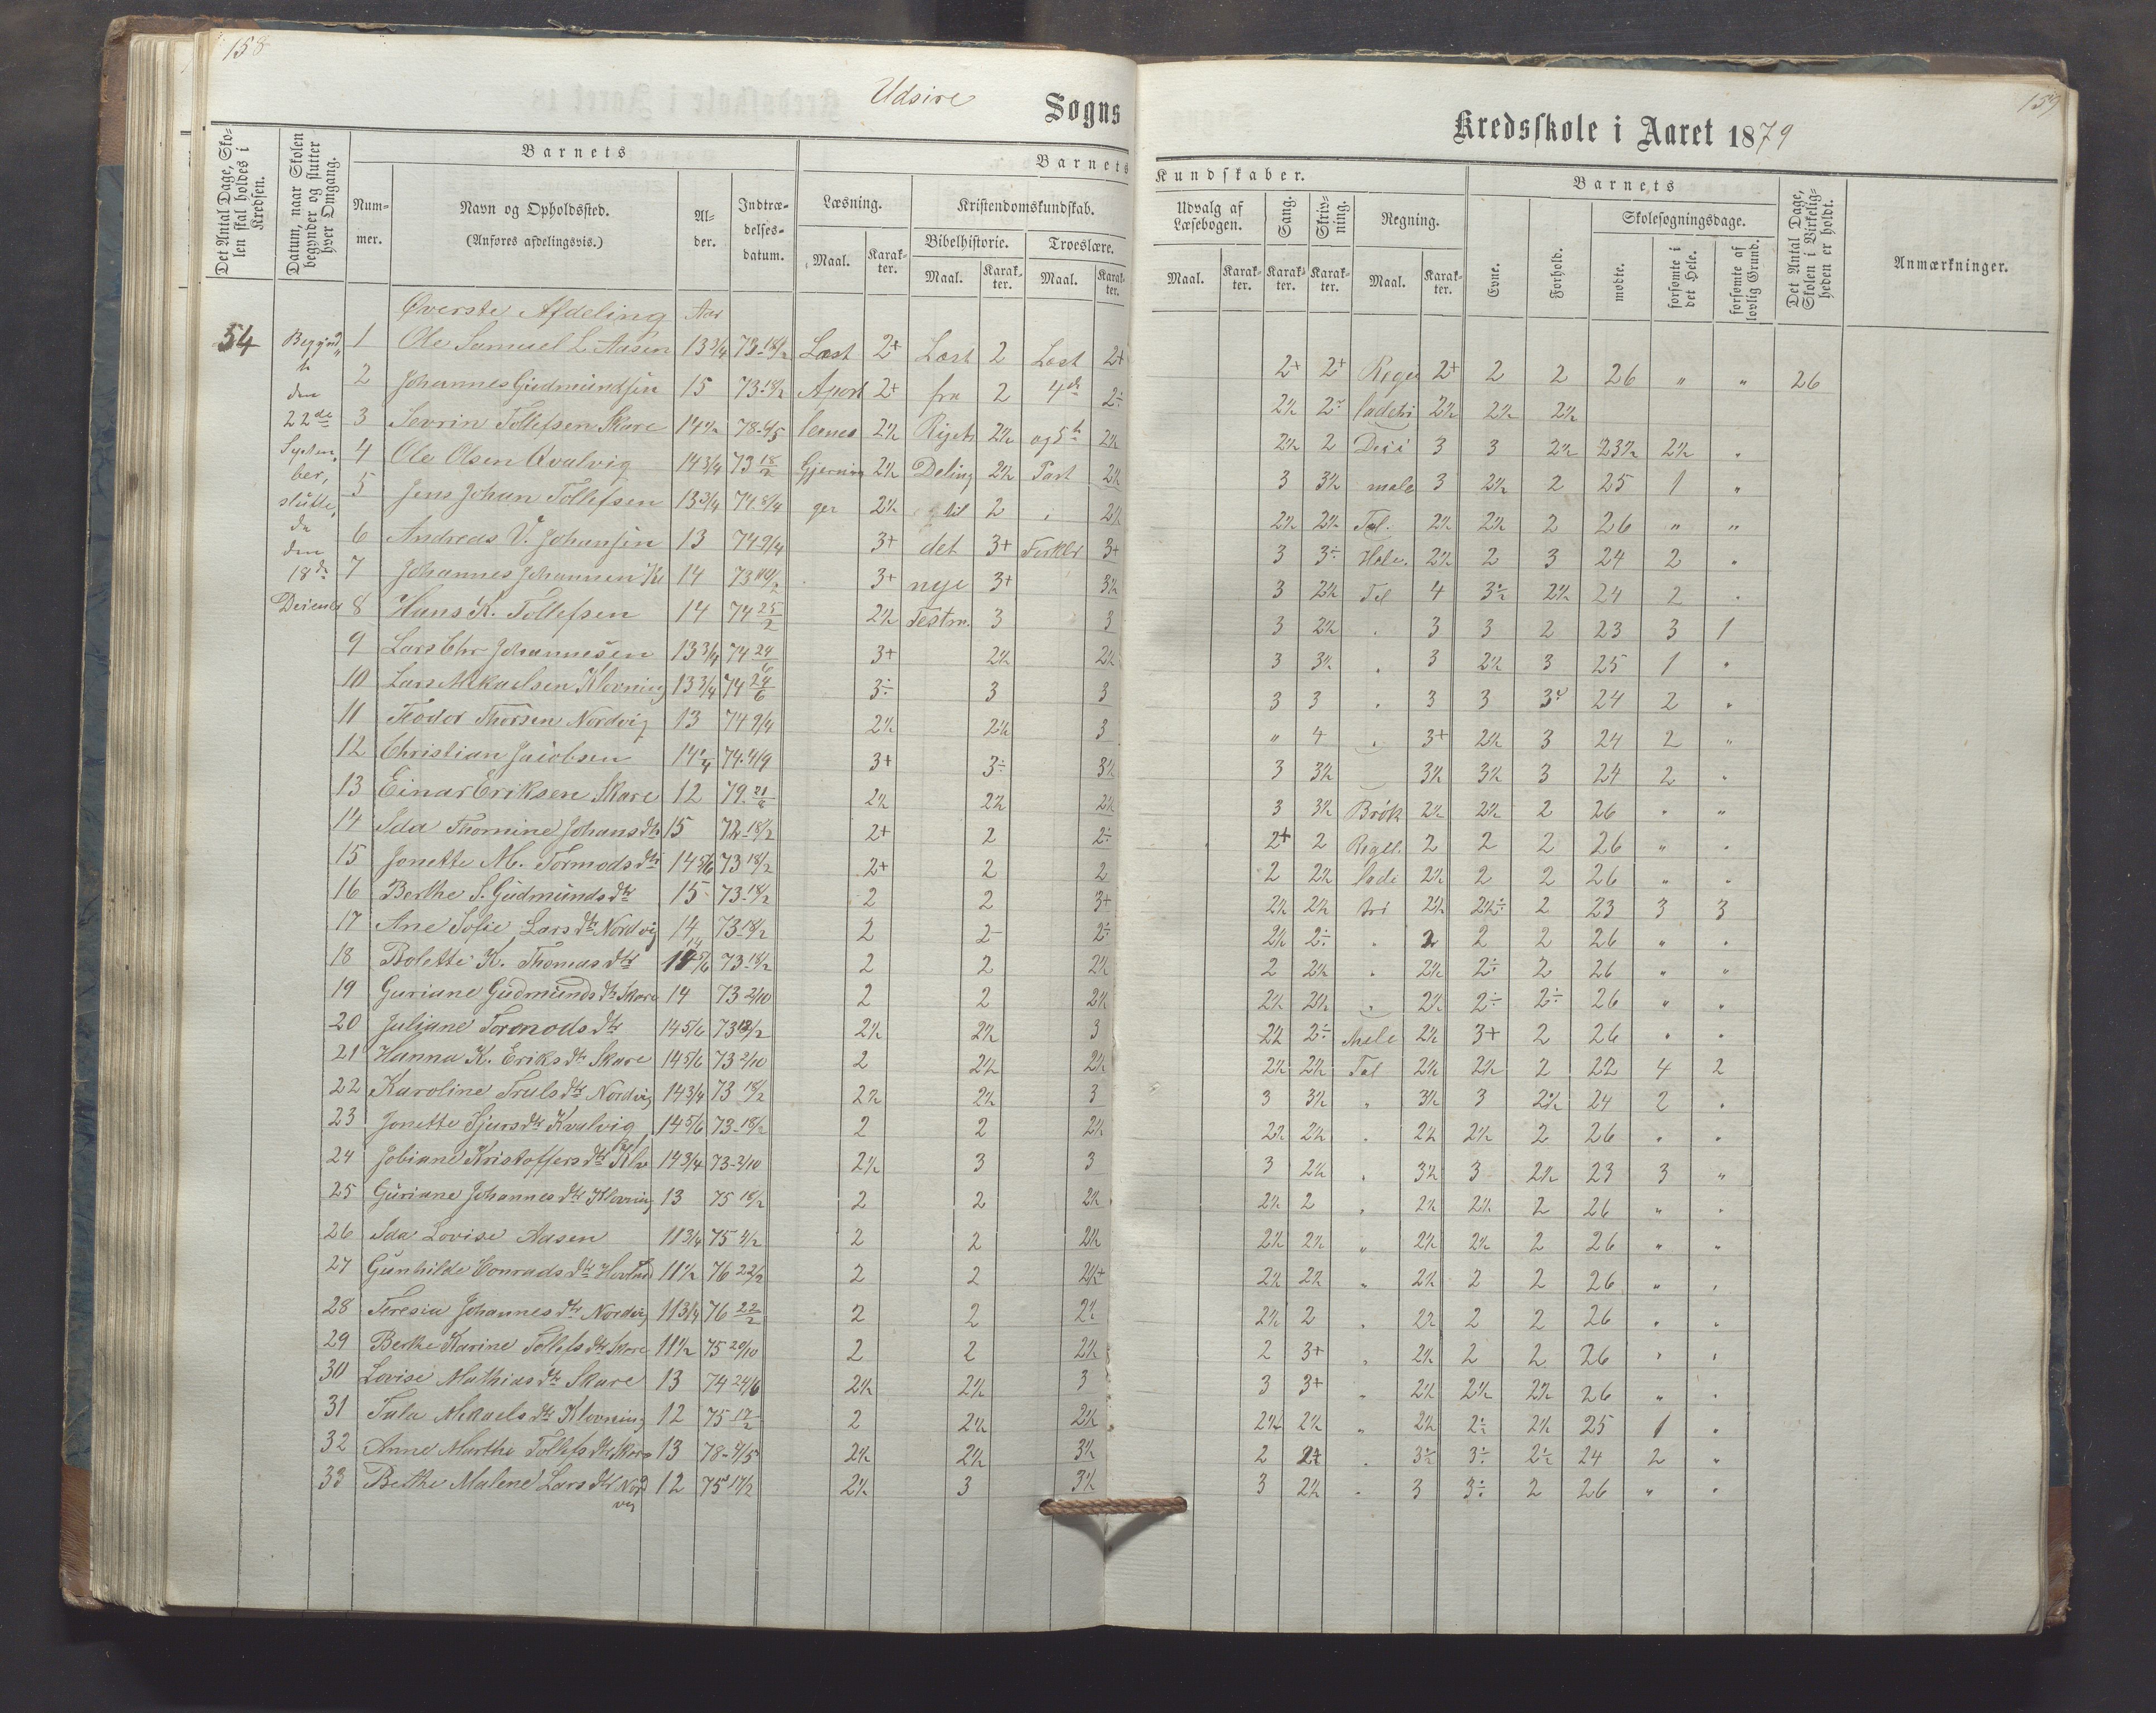 158
Udsire Sogns
Det Antal Dage, Skolen skal holdes i Kredsen.
Datum, naar Skolen begynder og slutter hver Omgang.
Barnets
Nummer.
Navn og Opholdssted.
(Anføres afdelingsvis.)
Alder.
Indtrædelsesdatum.
Barnets
Læsning.
Maal.
Karakter.
Kristendomskundskab.
Bibelhistorie.
Maal.
Karakter.
Troeslære.
Maal.
Karakter.
Øverste Afdeling Aar
54
den
22de
Septem
ber,
slutte
den
18de
1 Ole Samuel L. Aasen 13 3/4 73-18/2 Læst 2+ Læst 2 Læst 2+
2 Johannes Gudmundsen 15 73-18/2 Apost 2+ fra 2 4de 2÷
3 Sevrin Tollefsen Skare 14 1/2 78-6/5 lenes 2½ Rigets 2½ og 5t 2½
4 Ole Olsen Qvalvig 14 3/4 73 18/2 Gjernin 2½ Deling 2½ Part 2½
5 Jens Johan Tollefsen 13 3/4 74 8/4 ger 2½ til 2 2½
6 Andreas V. Johansen 13 74-9/4 3+ det 3+ Forklr 3+
7 Johannes Johannesen Kl 14 73 3+ nye 3+ 3½
8 Hans K. Tollefsen 14 74 25/2 2½ Testm. 3 3
9 Lars Chr Johannesen 13 3/4 74 24/6 3+ 2½ 2½
10 Lars Mikaelsen Klovning 13 3/4 74 24/6 3÷ 3 3
11 Teodor Thorsen Nordvig 13 74 9/4 2½ 2½ 3
12 Christian Jacobsen 14 1/4 74. 4/9 3+ 3÷ 3½
13 Einar Eriksen Skare 12 79. 2½ 2½ 2½
14 Ida Thomine Johansdtr 15 72-18/2 2+ 2 2÷
15 Jonette M. Tormodsdtr 14 5/6 73 18/2 2+ 2 2
16 Berthe S. Gudmundsdtr 15 73-18/2 2 2 3+
17 Ane Sofie Larsdtr Nordvig 14 73-18/2 2 2 2÷
18 Bolette K. Thomasdtr 14 5/6 73-18/2 2 2 2½
19 Guriane Gudmundsdtr Skare 14 73 2/10 2 2 2½
20 Juliane Tormodsdtr 14 5/6 73 18/2 2½ 2½ 3
21 Hanna K. Eriksdtr Skare 14 5/6 73 2/10 2 2½ 2½
22 Karoline Trulsdtr Nordvig 14 3/4 73 18/2 2½ 2½ 3
23 Jonette Sjursdtr Kvalvig 14 5/6 73-18/2 2 2 2½
24 Jobiane Kristoffersdtr Klo 14 3/4 73-2/10 2½ 3 3
25 Guriane Johannesdtr Klovning 13 75 18/2 2 2 2½
26 Ida Lovise Aasen 11 3/4 75 4/2 2 2 2½
27 Gunhilde Conradsdtr 11 1/2 76 22/2 2 2 2½+
28 Teresia Johannesdtr Nordvig 11 3/4 76 22/2 2 2 2½
29 Berthe Karine Tollefsdtr Skare 11 1/2 75 20/10 2 2 2½
30 Lovise Mathiasdtr Skare 13 74 24/6 2½ 2½ 3
31 Tala Mikaelsdtr Klovning 12 75 17/2 2 2½ 2½
32 Anne Marthe Tollefsdtr Skare 13 78-4/5 2½ 2½ 3½
33 Bethe Malene Larsdtr Nordvig 12 75 17/2 2½ 3 3½
159
Kredsskole i Aaret 1879
Kundskaber.
Udvalg af Læsebogen.
Maal.
Karakter.
Sang.
Karakter.
Skrivning.
Karakter.
Regning.
Maal.
Karakter.
Barnets
Evne.
Forhold.
Skolesøgningsdage.
mødte.
forsømte i det Hele.
forsømte af lovlig Grund.
Det Antal Dage, Skolen i Virkeligheden er holdt.
Anmærkninger.
2+ 2+ Regu 2+ 2 2 26 " " 26
2½ 2÷ ladetri 2½ 2½ 2½
2½ 2 Deci 3 3 2½ 23½ 2½ "
3 3½ male 3 2½ 2 25 1 "
2½ 2½ Tal. 2½ 2½ 2 26 " "
3 3÷ Hele. 2½ 2 3 24 2 "
3 2½ Tal 4 3½ 2½ 24 2 "
3 2½ " 3 3 2 23 3 1
3 3½ " 3 2½ 3 25 1 "
3 3 " 3 3 3÷ 24 2 "
" 4 " 3+ 2½ 3 24 2 "
3 3½ 3½ 3½ 3 24 2 "
3 3½ Brök 2½ 2½ 2 26 " "
2+ 2 Regel. 2 2 2 26 " "
2 2½ lade 2½ 2 2 26 " "
2½ 2½ tri 2½ 2½÷ 2 23 3 3
2½ 2÷ " 2 2 2 26 " "
2 2½ " 2½ 2÷ 2 26 " "
2½ 2½ " 2½ 2÷ 2÷ 26 " "
2½ 2÷ Hele 2½ 3+ 2 26 " "
2½ 2½ Tal 2½ 2½ 2 22 4 2
3 3½ " 3½ 3 2½ 24 2 "
2½ 2½ " 2½ 2½ 2 26 " "
3 2½ " 3½ 3 2½ 23 3 "
2½ 2 " 2½ 2½ 2 26 " "
2½ 2½ " 2½ 2½ 2 26 " "
2½ 2½ " 2½ 2 2 26 " "
2½ 2 " 2½ 2 2 26 " "
2 3+ " 2½ 2 2 26 " "
3 3+ " 2½ 2½ 2½ 26 " "
2½ 2½ " 2½ 2÷ 2½ 25 1 "
2 2+ " 3½ 3÷ 2½ 24 2 "
3 2½ " 3 3÷ 2 26 " "